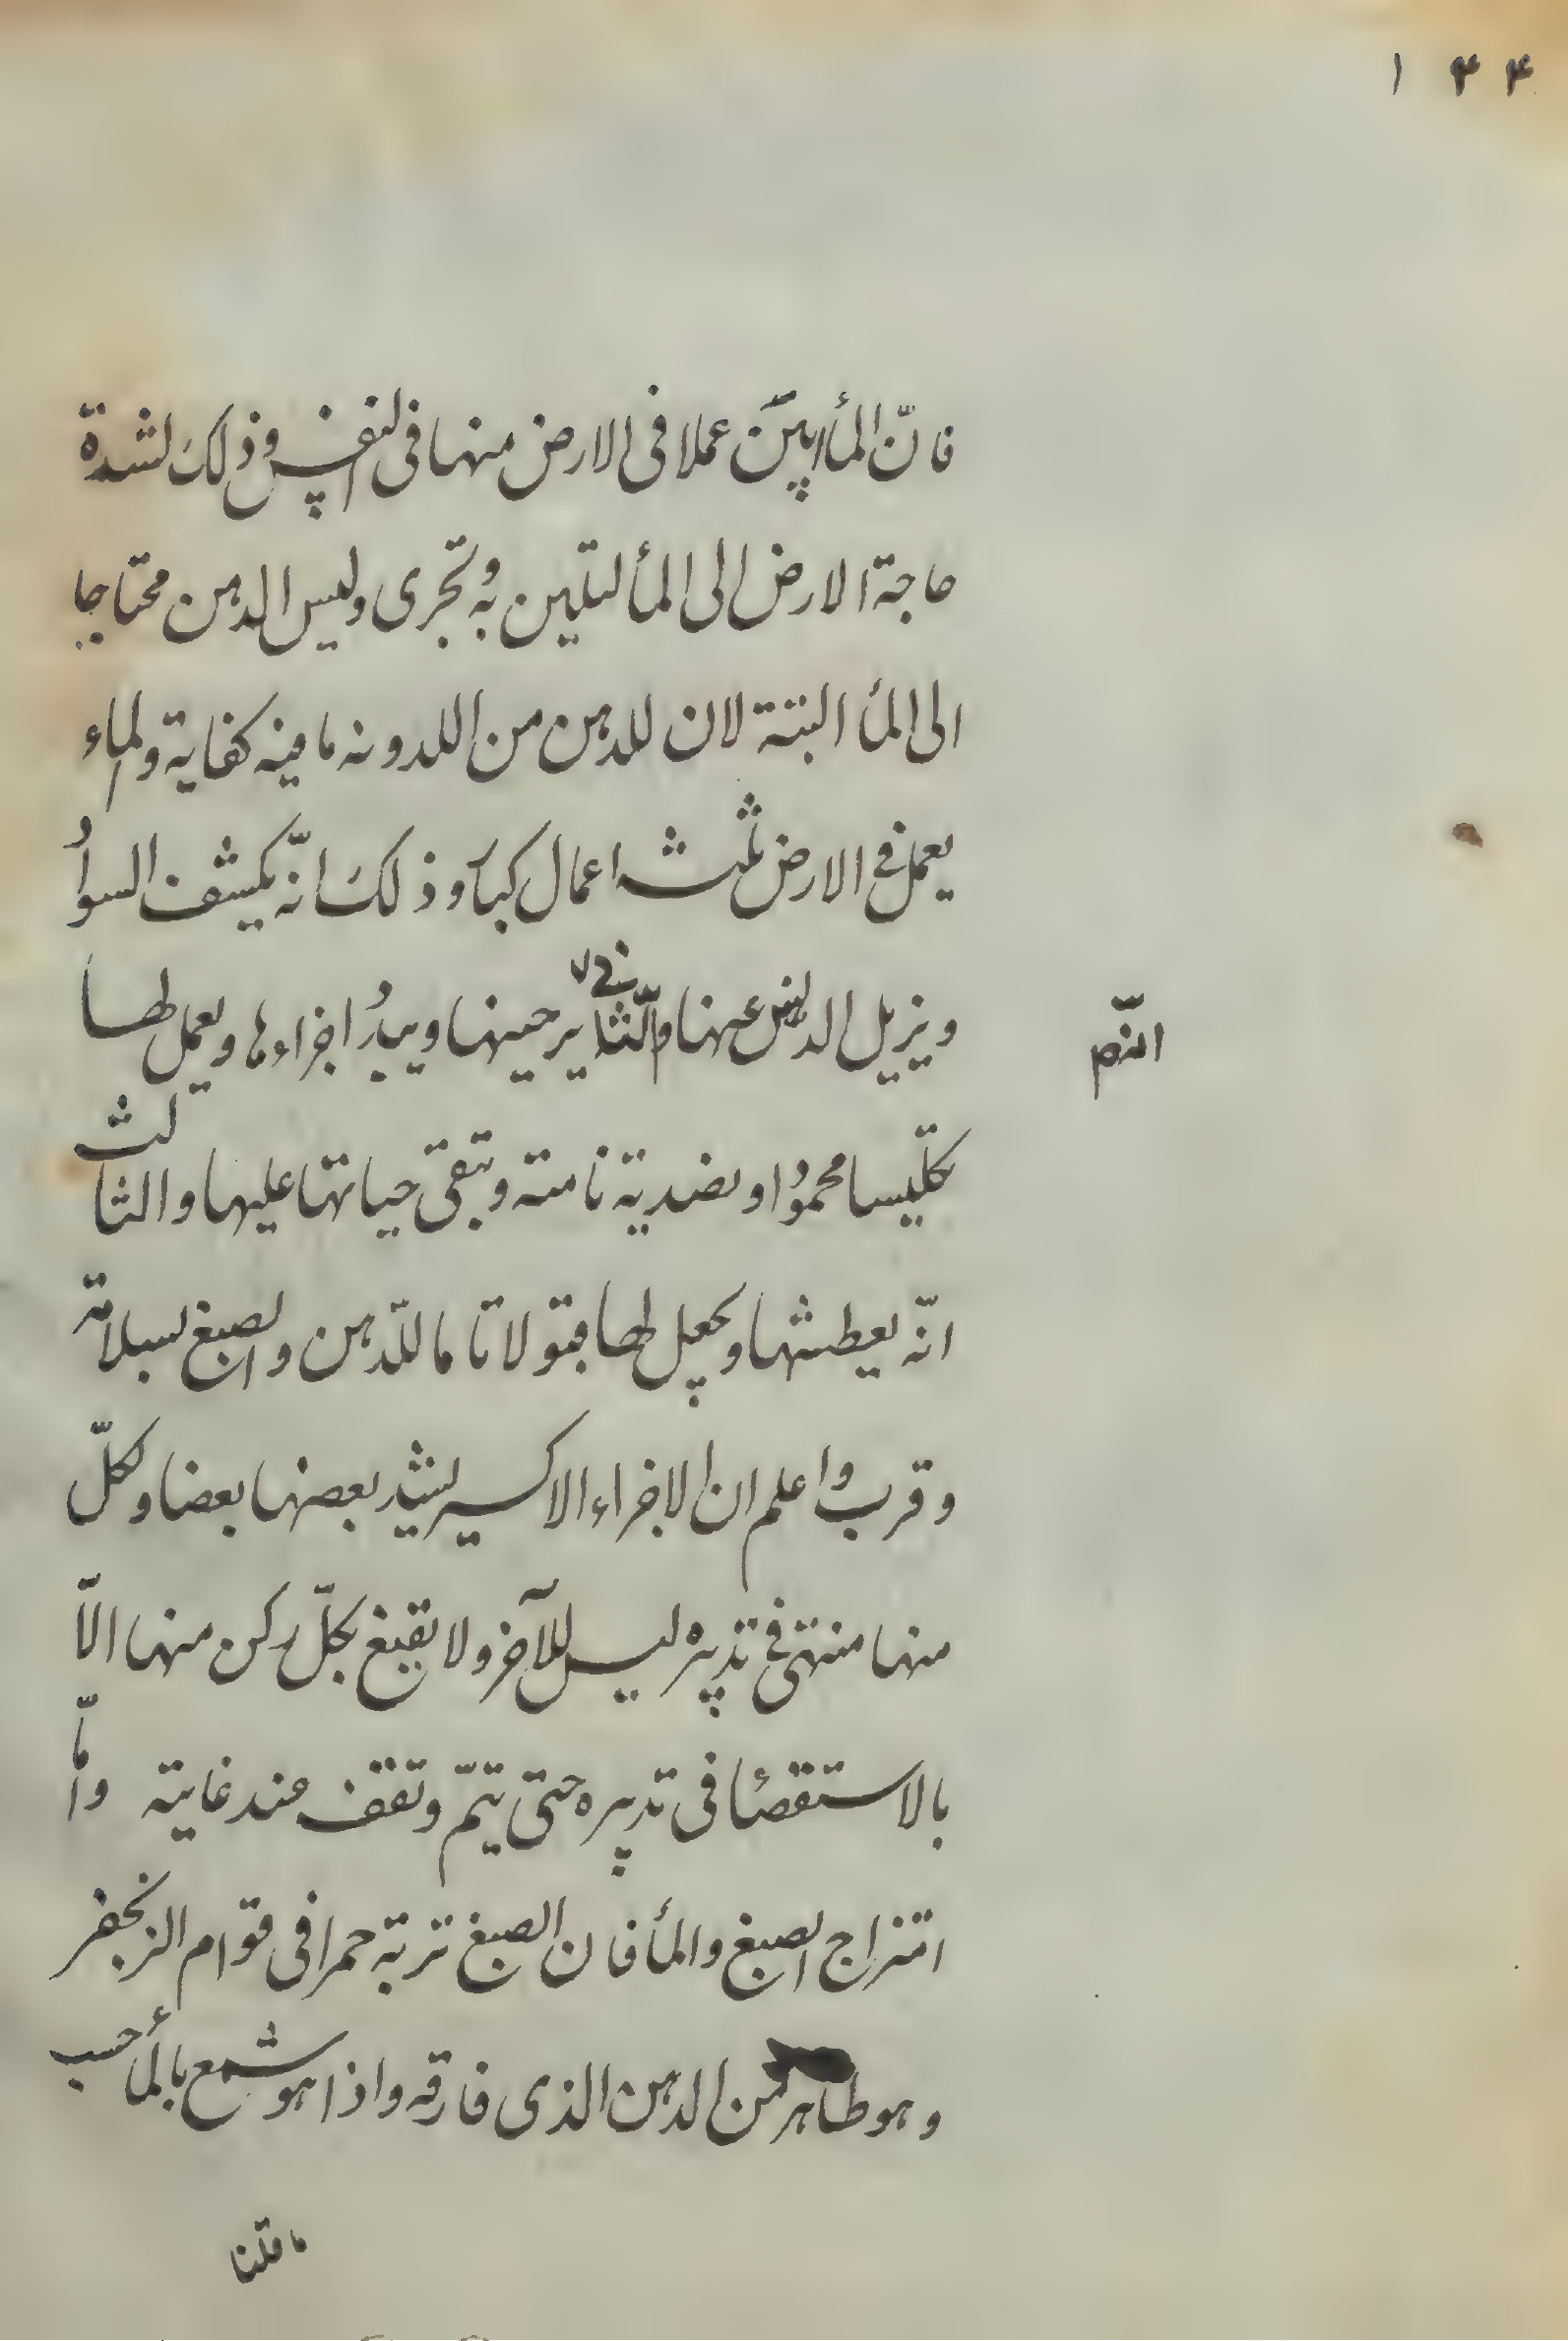 ١٤٤
فانّ المأ ابين عملا فى الارض منها فى النفس وذلك لشدة
حاجة الارض الى المأ لتلين به وتجرى وليس الدهن محتاجا
الى المأ البتة لان للدهن من اللدونه ما فيه كفاية والماء
يعمل فى الارض ثلث اعمال كبار وذلك انّه يكشف السواد
ويزيل الدنس عنها والثّانى يرخيها ويبدد اجزاءها ويعمل لها
تكليسا محمودا و ندية نامته وتبقى حياتها عليها والثالث
انّه يعطشها ويجعل لها قبولا تاما للدّهن والصبغ بسلامة
وقرب واعلم ان لاجزاء الاكسير ليشد بعضها بعضا ولكلّ
منها منتهى فى تدبيره ليس للآخر ولا يقبغ بكلّ ركن منها الاّ
بالاستقصأ فى تدبيره حتى يتمّ وتقف عند غايته وامّا
امتزاج الصبغ والمأ فان الصبغ تربة حمرا فى قوام الزنجفر
وهو طاهر من الدهن الذى فارقه واذا هو شمع بالمأ حسب
ما قلنا